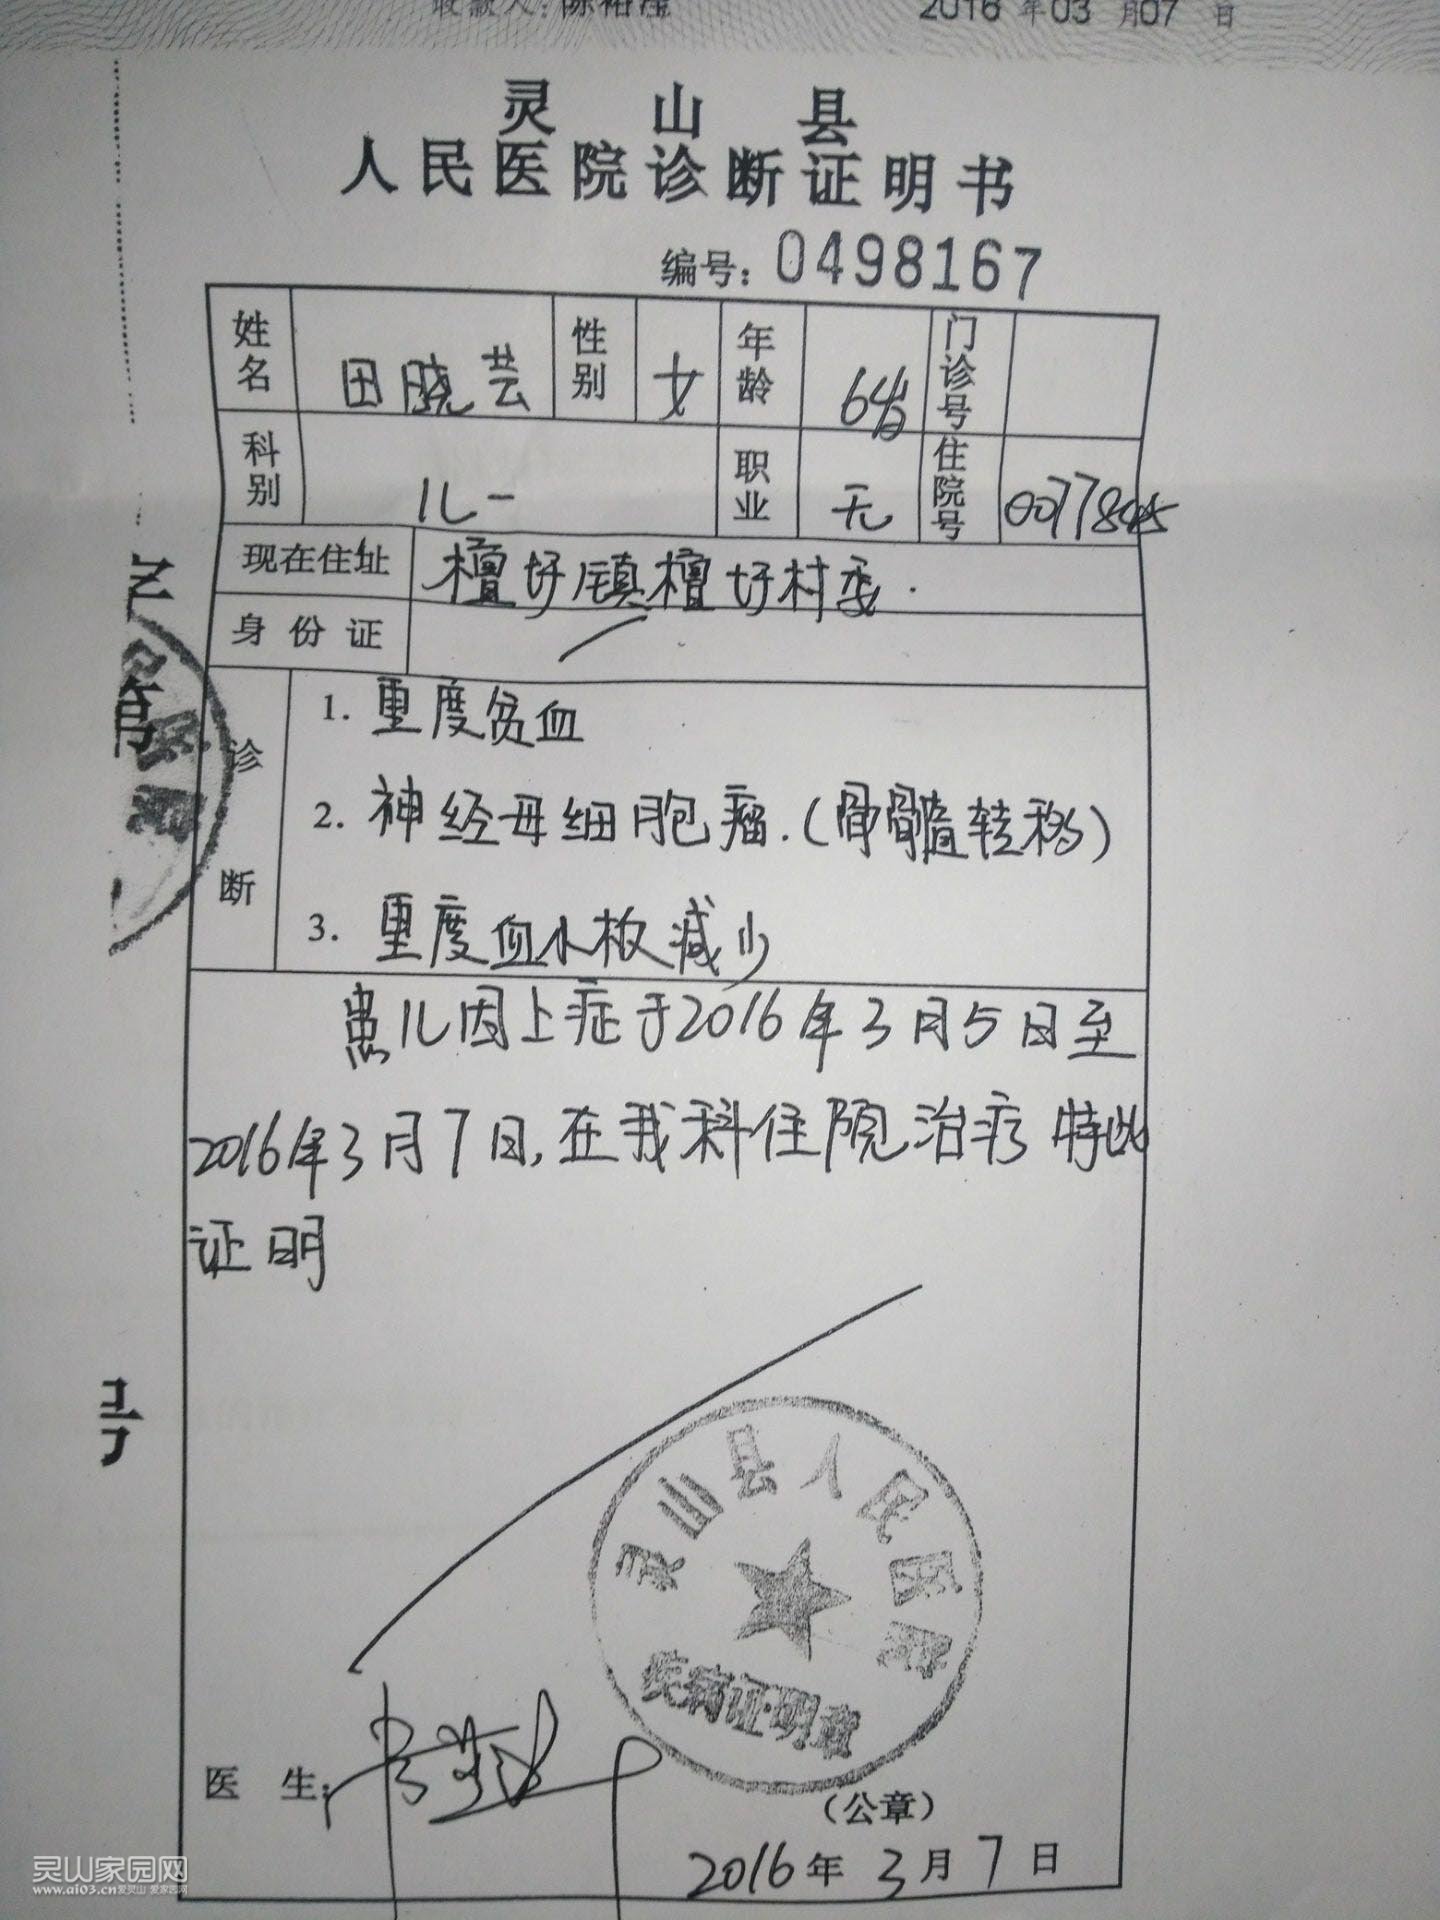 收款人:
2016 年03 月07 日
灵山县
人民医院诊断证明书
编号: 0498167
姓名 田晓芸 性别 女 年龄 6岁 门诊号
科别 儿一 职业 无 住院号
现在住址 檀圩镇檀圩村委.
身份证
诊断
1. 重度贫血
2. 神经母细胞瘤.(骨髓转移)
3. 重度血小板减少
患儿因上症于2016年3月5日至
2016年3月7日,在我科住院治疗 特此
证明
灵山县人民医院
疾病证明章
医 生:
(公章)
2016年 3月 7日
号
灵山家园网
www.ai03.cn爱灵山 爱家园网